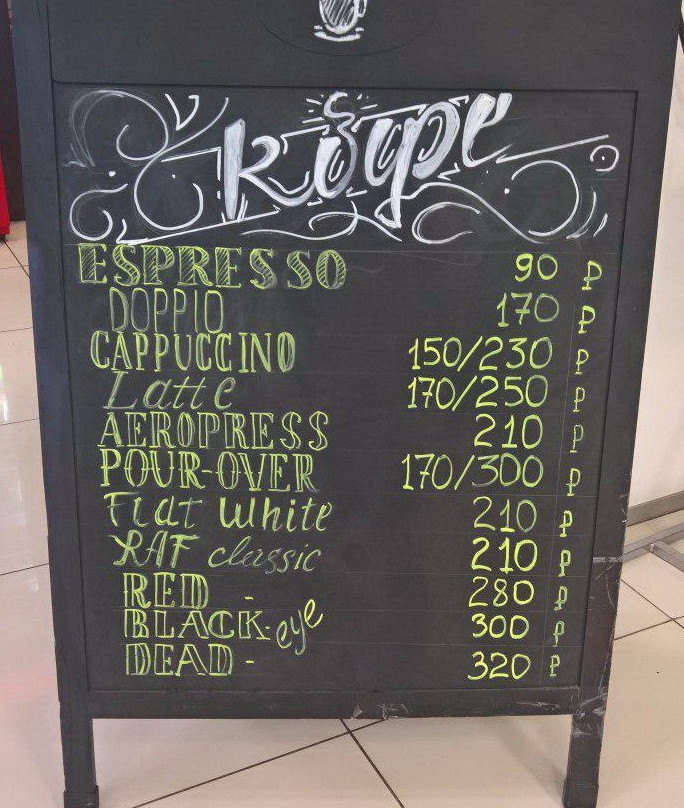 кофе
ESPRESSO 90 ₽
DOPPIO 170 ₽
CAPPUCCINO 150/230 ₽
Latte 170/250 ₽
AEROPRESS 210 ₽
POUR-OVER 170/300 ₽
Flat White 210 ₽
RAF classic 210 ₽
RED - 280 ₽
BLACK- eye 300 ₽
DEAD - 320 ₽